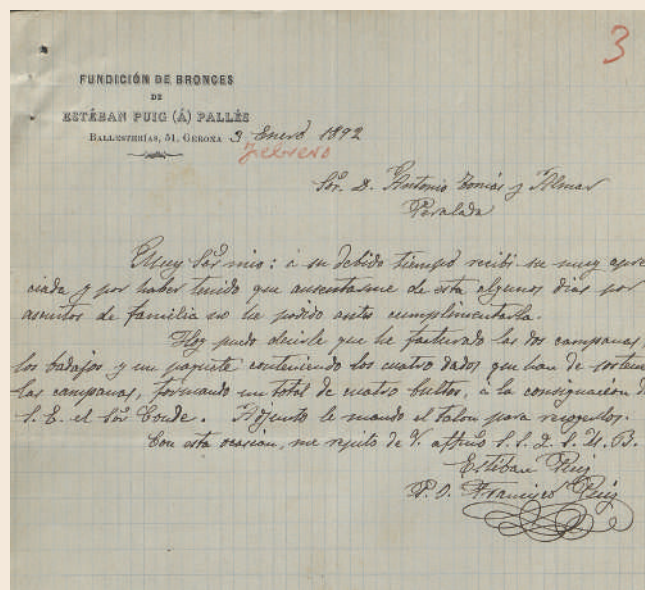 3
FUNDICIÓN DE BRONCES
DE
ESTÉBAN PUIG (Á) PALLÉS
BALLESTERÍAS, 51, GERONA 3 Enero 1892
Febrero
Sor. D. Antonio Tomás y
Peralada
Muy Sor mio: á su debido tiempo recibi su muy apre
ciada y por haber tenido que ausentarme de esta algunos dias por
asuntos de familia no he podido antes cumplimentarla.
Hoy puedo decirle que he facturado las dos campanas,
los badajos y un paquete conteniendo los cuatro dados que han de sostener
las campanas, formando un total de cuatro bultos, á la consignación d
S. E. el Sor Conde. Adjunto le mando el talon para recogerlos.
Con esta ocasion, me repito de V. affmo S. S. Q. S. M. B.
Estéban Puig
P. O. Francisco Puig